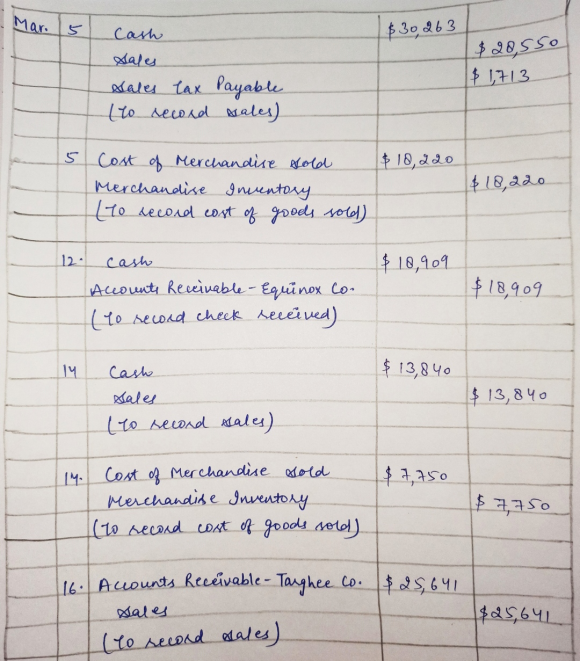 Mar. 5 Cash $30,263
Sales $28,550
Sales Tax Payable $1,713
(To record sales)
5 Cost of Merchandise sold $18,220
Merchandise Inventory $18,220
(To record cost of goods sold)
12. Cash $18,909
Accounts Receivable - Equinox Co. $18,909
(To record check received)
14 Cash $13,840
Sales $13,840
(To record sales)
14. Cost of Merchandise sold $7,750
Merchandise Inventory $7,750
(To record cost of goods sold)
16. Accounts Receivable - Targhee Co. $25,641
Sales $25,641
(To record sales)